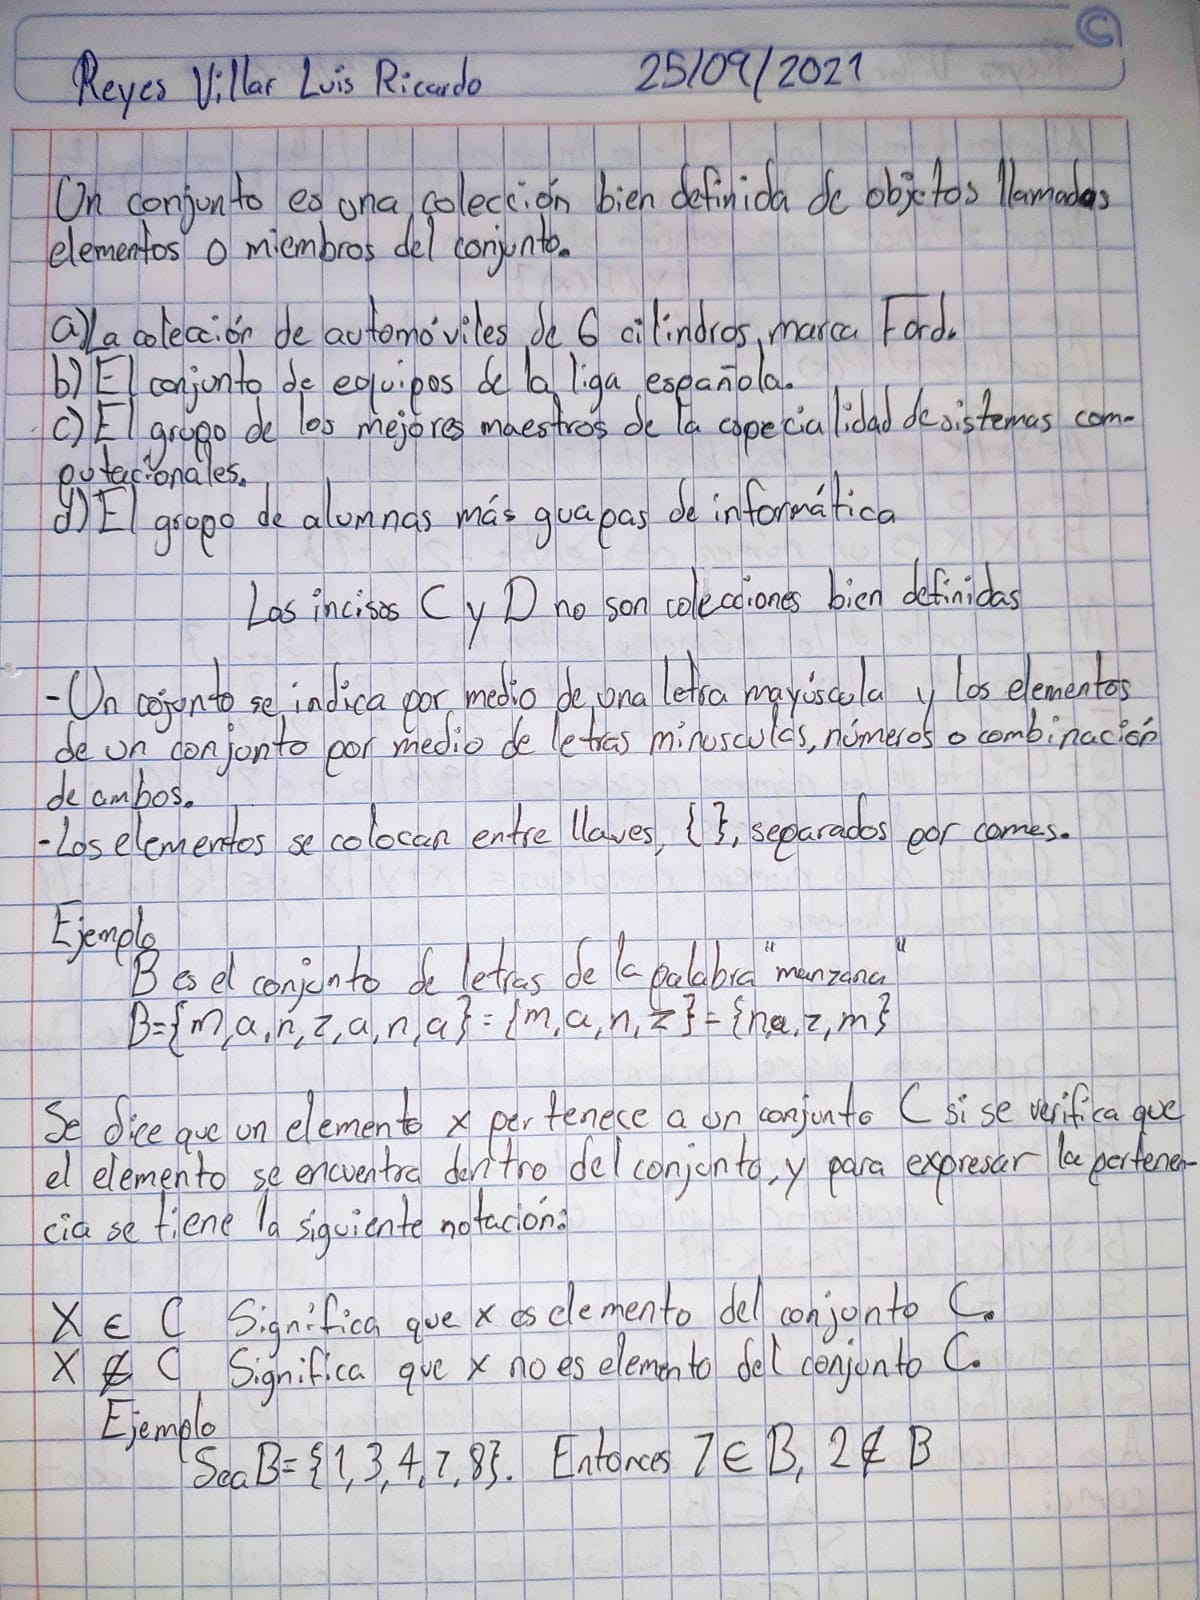 ©
Reyes Villar Luis Ricardo 25/09/2021
Un conjunto es una colección bien definida de objetos llamados
elementos o miembros del conjunto.
a) La colección de automóviles de 6 cilindros, marca Ford.
b) El conjunto de equipos de la liga española.
c) El grupo de los mejores maestros de la especialidad de sistemas com-
putacionales.
d) El grupo de alumnas más guapas de informática
Los incisos C y D no son colecciones bien definidas
- Un cojunto se indica por medio de una letra mayúscula y los elementos
de un conjunto por medio de letras minusculas, números o combinación
de ambos.
- Los elementos se colocan entre llaves, { }, separados por comas.
Ejemplo
B es el conjunto de letras de la palabra "manzana"
B={m,a,n,z,a,n,a}={m,a,n,z}={n,a,z,m}
Se dice que un elemento x pertenece a un conjunto C si se verifica que
el elemento se encuentra dentro del conjunto, y para expresar la pertenen-
cia se tiene la siguiente notación:
X ∈ C Significa que x es elemento del conjunto C.
X ∉ C Significa que x no es elemento del conjunto C.
Ejemplo
Sea B= {1,3,4,7,8}. Entonces 7∈B, 2∉B